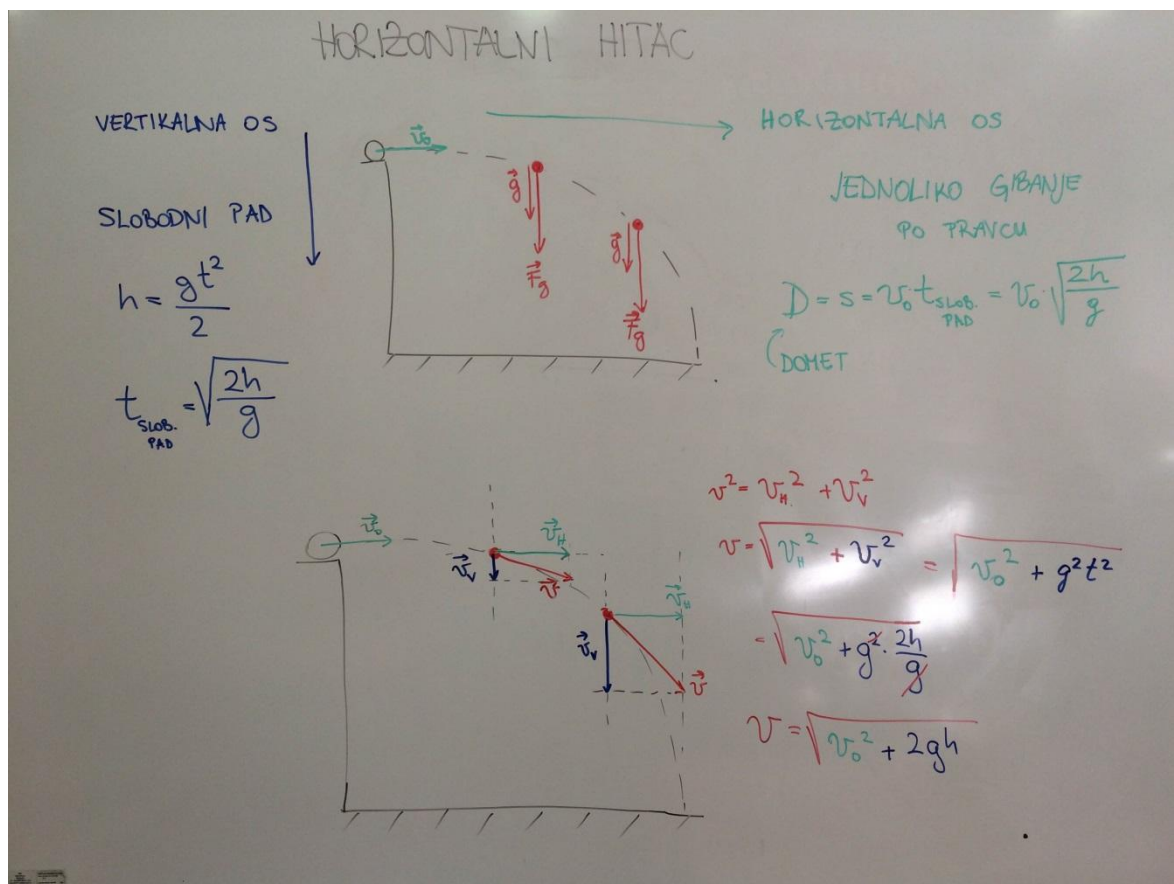 HORIZONTALNI HITAC
VERTIKALNA OS
SLOBODNI PAD
h = gt²/2
t_SLOB. PAD = √(2h/g)
v⃗₀
g⃗
F⃗g
g⃗
F⃗g
HORIZONTALNA OS
JEDNOLIKO GIBANJE
PO PRAVCU
D = s = v₀·t_SLOB. PAD = v₀·√(2h/g)
DOMET
v⃗₀
v⃗_H
v⃗_V
v⃗
v⃗_H
v⃗_V
v⃗
v² = v_H² + v_V²
v = √(v_H² + v_V²) = √(v₀² + g²t²)
= √(v₀² + g²·2h/g)
v = √(v₀² + 2gh)